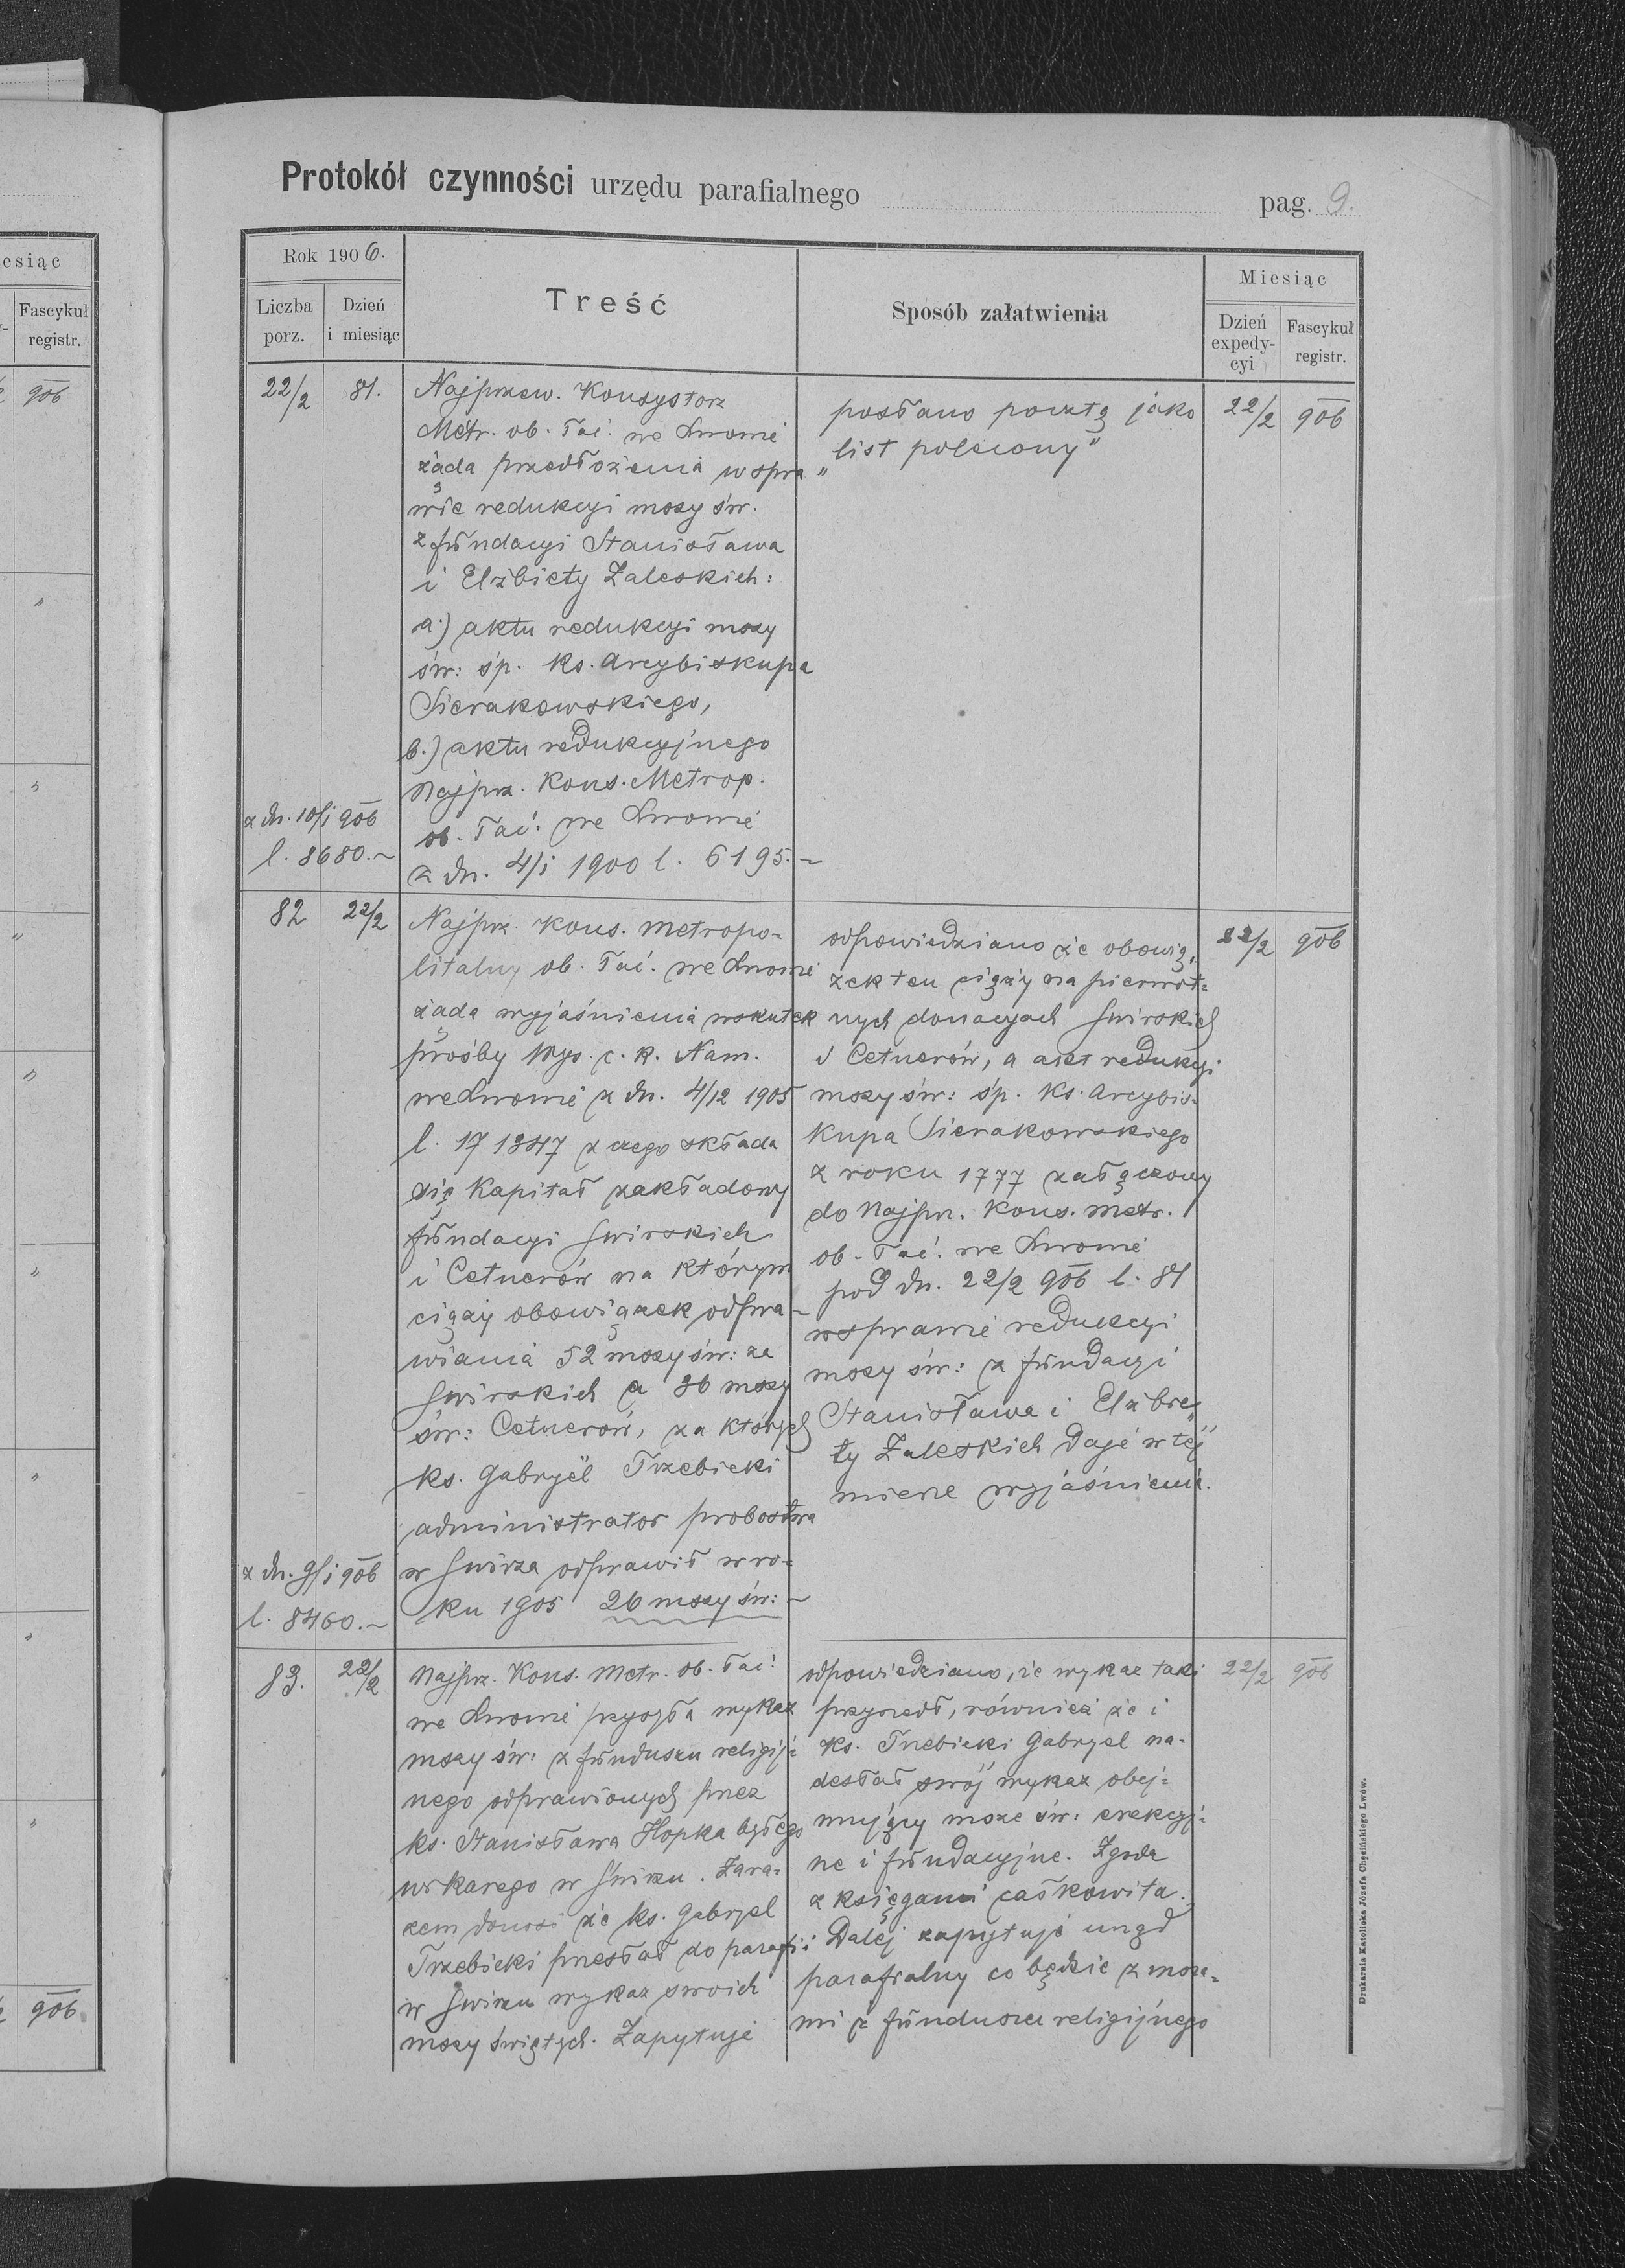 esiąc
Fascykuł
registr.
906
"
"
"
"
"
"
"
"
906
Protokół czynności urzędu parafialnego
pag. 9.
Rok 1906.
Liczba porz.
Dzień i miesiąc
Treść
Sposób załatwienia
Miesiąc
Dzień expedy-cyi
Fascykuł registr.
22/2
81.
Najprzew. Konsystorz
Metr. ob. łać. we Lwowie
żąda przedłożenia w spra„
wie redukcyi mszy św.
z fundacyi Stanisława
i Elżbiety Zaleskich:
a.) aktu redukcyi mszy
św: śp. ks. Arcybiskupa
Sierakowskiego,
b.) aktu redukcyjnego
Najprz. Kons. Metrop.
ob. łać. we Lwowie
z dn. 4/i 1900 l. 6195.~
z dn. 10/i 906
l. 8680.~
posłano pocztą jako
list polecony"
22/2
906
82
22/2
Najprz. Kons. metropo=
litalny ob. łać. we Lwowie
żąda wyjaśnienia wskutek
prośby Wys. c. k. Nam.
we Lwowie z dn. 4/12 1905
l. 171347 z czego składa
się Kapitał zakładowy
fundacyi Świrskich
i Cetnerów na którym
ciąży obowiązek odpra-
wiania 52 mszy św: za
Świrskich a 36 mszy
św: Cetnerów, za których
ks. Gabryël Trzebicki
administrator probostwa
w Świrza odprawił w ro=
ku 1905 26 mszy św:~
z dn. 9/i 906
l. 8460.~
odpowiedziano że obowią„
zek ten ciąży na pierwot=
nych donacyach Świrskich
i Cetnerów, a akt redukcyi
mszy św: śp. Ks. Arcybis=
kupa Sierakowskiego
z roku 1777 załączony
do Najprz. Kons. metr.
ob. łać. we Lwowie
pod dn. 22/2 906 l. 81
w sprawie redukcyi
mszy św: z fundacyi
Stanisława i Elżbie„
ty Zaleskich daje w tej
mierze wyjaśnienie.
22/2
906
83.
22/2
Najprz. Kons. Metr. ob. łać.
we Lwowie przysyła wykaz
mszy św: z funduszu religij=
nego odprawionych przez
ks. Stanisława Hopka byłego
wikarego w Świrzu. Zara=
zem donosi że ks. Gabryel
Trzebicki przesłał do parafii
w Świrzu wykaz swoich
mszy świętych. Zapytuje
odpowiedziano, że wykaz taki
przyszedł, również że i
ks. Trzebicki Gabryel na-
desłał swój wykaz obej=
mujący msze św: erekcyj=
ne i fundacyjne. Zgoda
z księgami całkowita.
Dalej zapytuje urząd
parafialny co będzie z msza=
mi z funduszu religijnego
22/2
906
Drukarnia Katolicka Józefa Chęcińskiego Lwów.